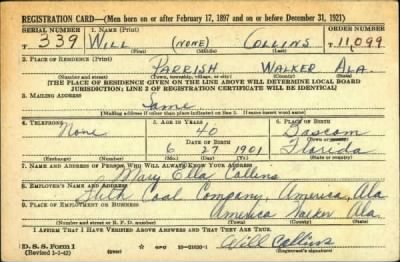 REGISTRATION CARD—(Men born on or after February 17, 1897 and on or before December 31, 1921)
SERIAL NUMBER 1. NAME (Print) ORDER NUMBER
T 339 WILL (NONE) COLLINS T 11,099
(First) (Middle) (Last)
2. PLACE OF RESIDENCE (Print)
PARRISH WALKER ALA.
(Number and street) (Town, township, village, or city) (County) (State)
[THE PLACE OF RESIDENCE GIVEN ON THE LINE ABOVE WILL DETERMINE LOCAL BOARD
JURISDICTION; LINE 2 OF REGISTRATION CERTIFICATE WILL BE IDENTICAL]
3. MAILING ADDRESS
Same
[Mailing address if other than place indicated on line 2. If same insert word same]
4. TELEPHONE 5. AGE IN YEARS 6. PLACE OF BIRTH
None 40
DATE OF BIRTH (Town or county)
6 27 1901 Florida
(Exchange) (Number) (Mo.) (Day) (Yr.) (State or country)
7. NAME AND ADDRESS OF PERSON WHO WILL ALWAYS KNOW YOUR ADDRESS
Mary Ella Collins
8. EMPLOYER'S NAME AND ADDRESS
Coal Company, America, Ala
9. PLACE OF EMPLOYMENT OR BUSINESS
America Walker Ala.
(Number and street or R. F. D. number) (Town) (County) (State)
I AFFIRM THAT I HAVE VERIFIED ABOVE ANSWERS AND THAT THEY ARE TRUE.
D. S. S. Form 1 GPO Will Collins
(Revised 1-1-42) (Registrant's signature)